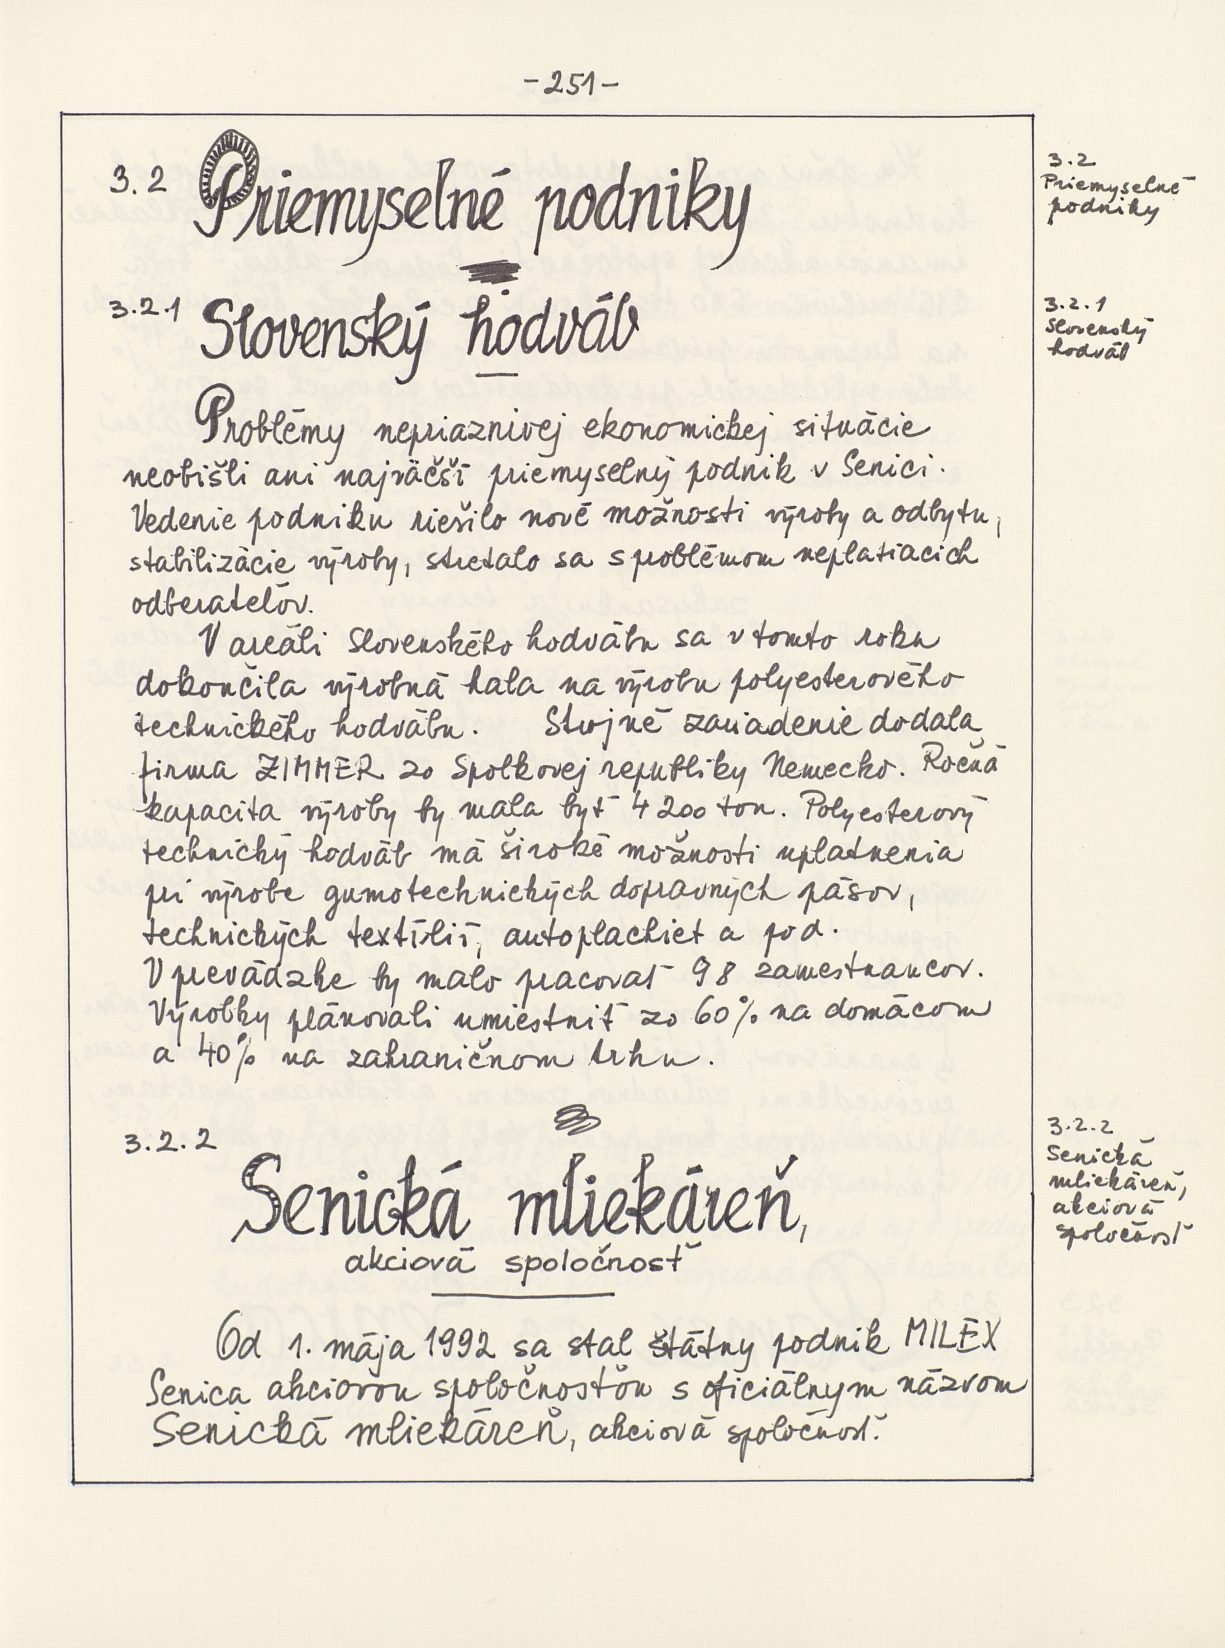 -251-
3.2 Priemyselné podniky
3.2
Priemyselné
podniky
3.2.1 Slovenský hodváb
3.2.1
Slovenský
hodváb
Problémy nepriaznivej ekonomickej situácie
neobišli ani najväčší priemyselný podnik v Senici.
Vedenie podniku riešilo nové možnosti výroby a odbytu,
stabilizácie výroby, stretalo sa s problémom neplatiacich
odberateľov.
V areáli Slovenského hodvábu sa v tomto roku
dokončila výrobná hala na výrobu polyesterového
technického hodvábu. Strojné zariadenie dodala
firma ZIMMER zo Spolkovej republiky Nemecko. Ročná
kapacita výroby by mala byť 4 200 ton. Polyesterový
technický hodváb má široké možnosti uplatnenia
pri výrobe gumotechnických dopravných pásov,
technických textílií, autoplachiet a pod.
V prevádzke by malo pracovať 98 zamestnancov.
Výrobky plánovali umiestniť zo 60% na domácom
a 40% na zahraničnom trhu.
3.2.2
Senická mliekáreň,
akciová spoločnosť
3.2.2
Senická
mliekáreň,
akciová
spoločnosť
Od 1. mája 1992 sa stal štátny podnik MILEX
Senica akciovou spoločnosťou s oficiálnym názvom
Senická mliekáreň, akciová spoločnosť.